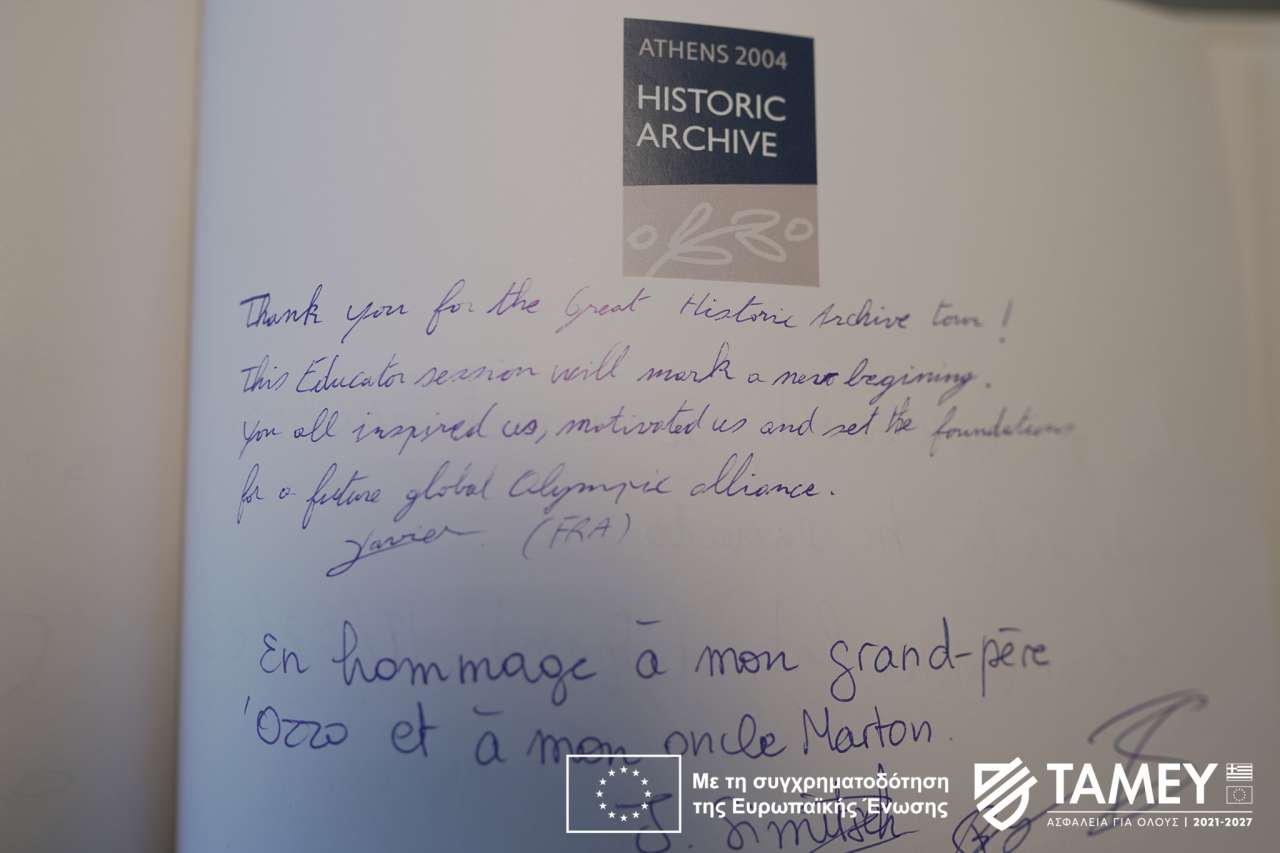 ATHENS 2004
HISTORIC
ARCHIVE
Thank you for the Great Historic Archive tour !
This Educator session will mark a new begining.
You all inspired us, motivated us and set the foundations
for a future global Olympic alliance.
Xavier (FRA)
En hommage à mon grand-père
Ozzo et à mon oncle Marton.
J.
Με τη συγχρηματοδότηση
της Ευρωπαϊκής Ένωσης
TAMEY
ΑΣΦΑΛΕΙΑ ΓΙΑ ΟΛΟΥΣ | 2021-2027